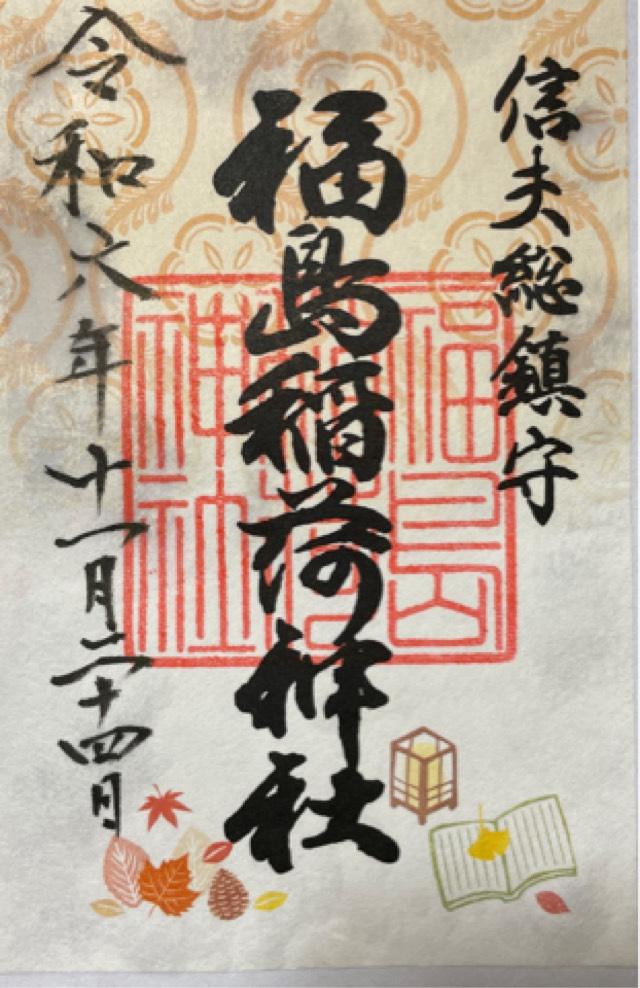 信夫総鎮守
福島稲荷神社
令和六年十一月二十四日
福島
稲荷
神社